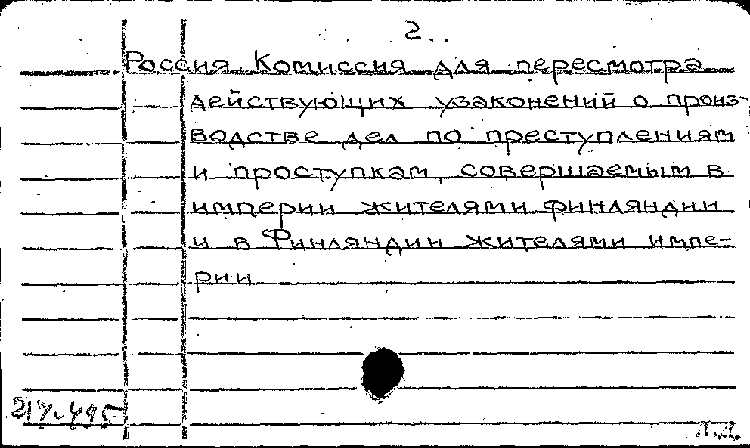 2.
Россия. Комиссия для пересмотра
действующих узаконений о произ-
водстве дел по преступлениям
и проступкам, совершаемым в
империи жителями финляндии
и в Финляндии жителями импе-
рии